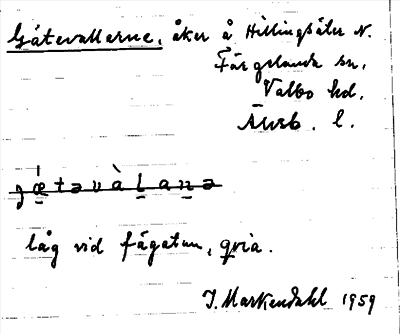 Gåtevallarne, åker å Hillingsäter N.
Färgelanda sn,
Valbo hd.
Älvsb. l.
låg vid fägatan, qvia.
J. Markendahl 1959